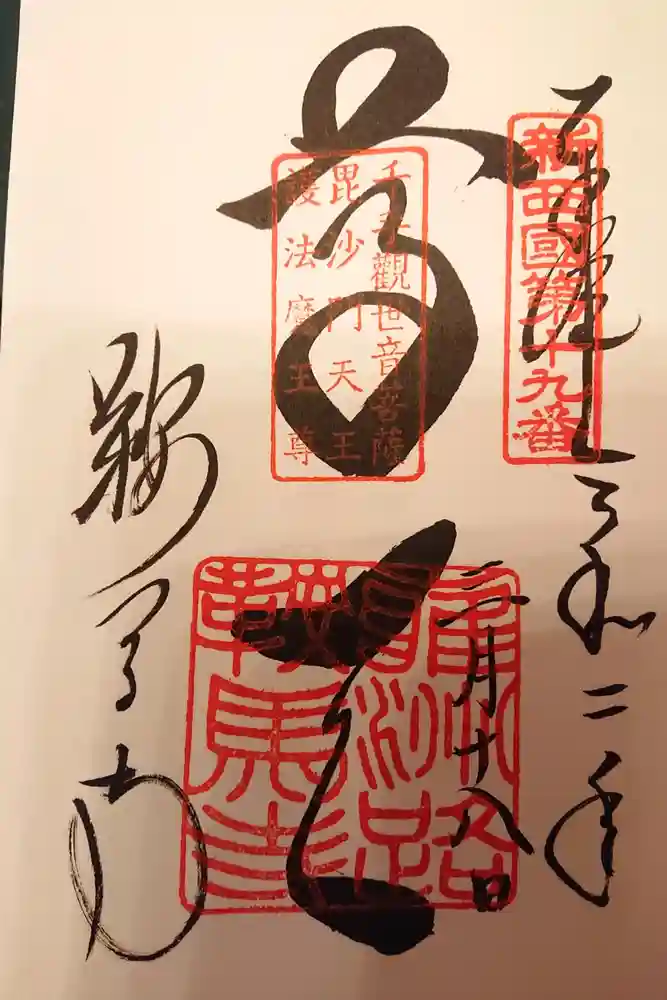 新西國第十九番
奉拝
令和二年
三月十八日
千手觀世音菩薩
毘沙門天王
護法魔王尊
尊天
鞍馬寺